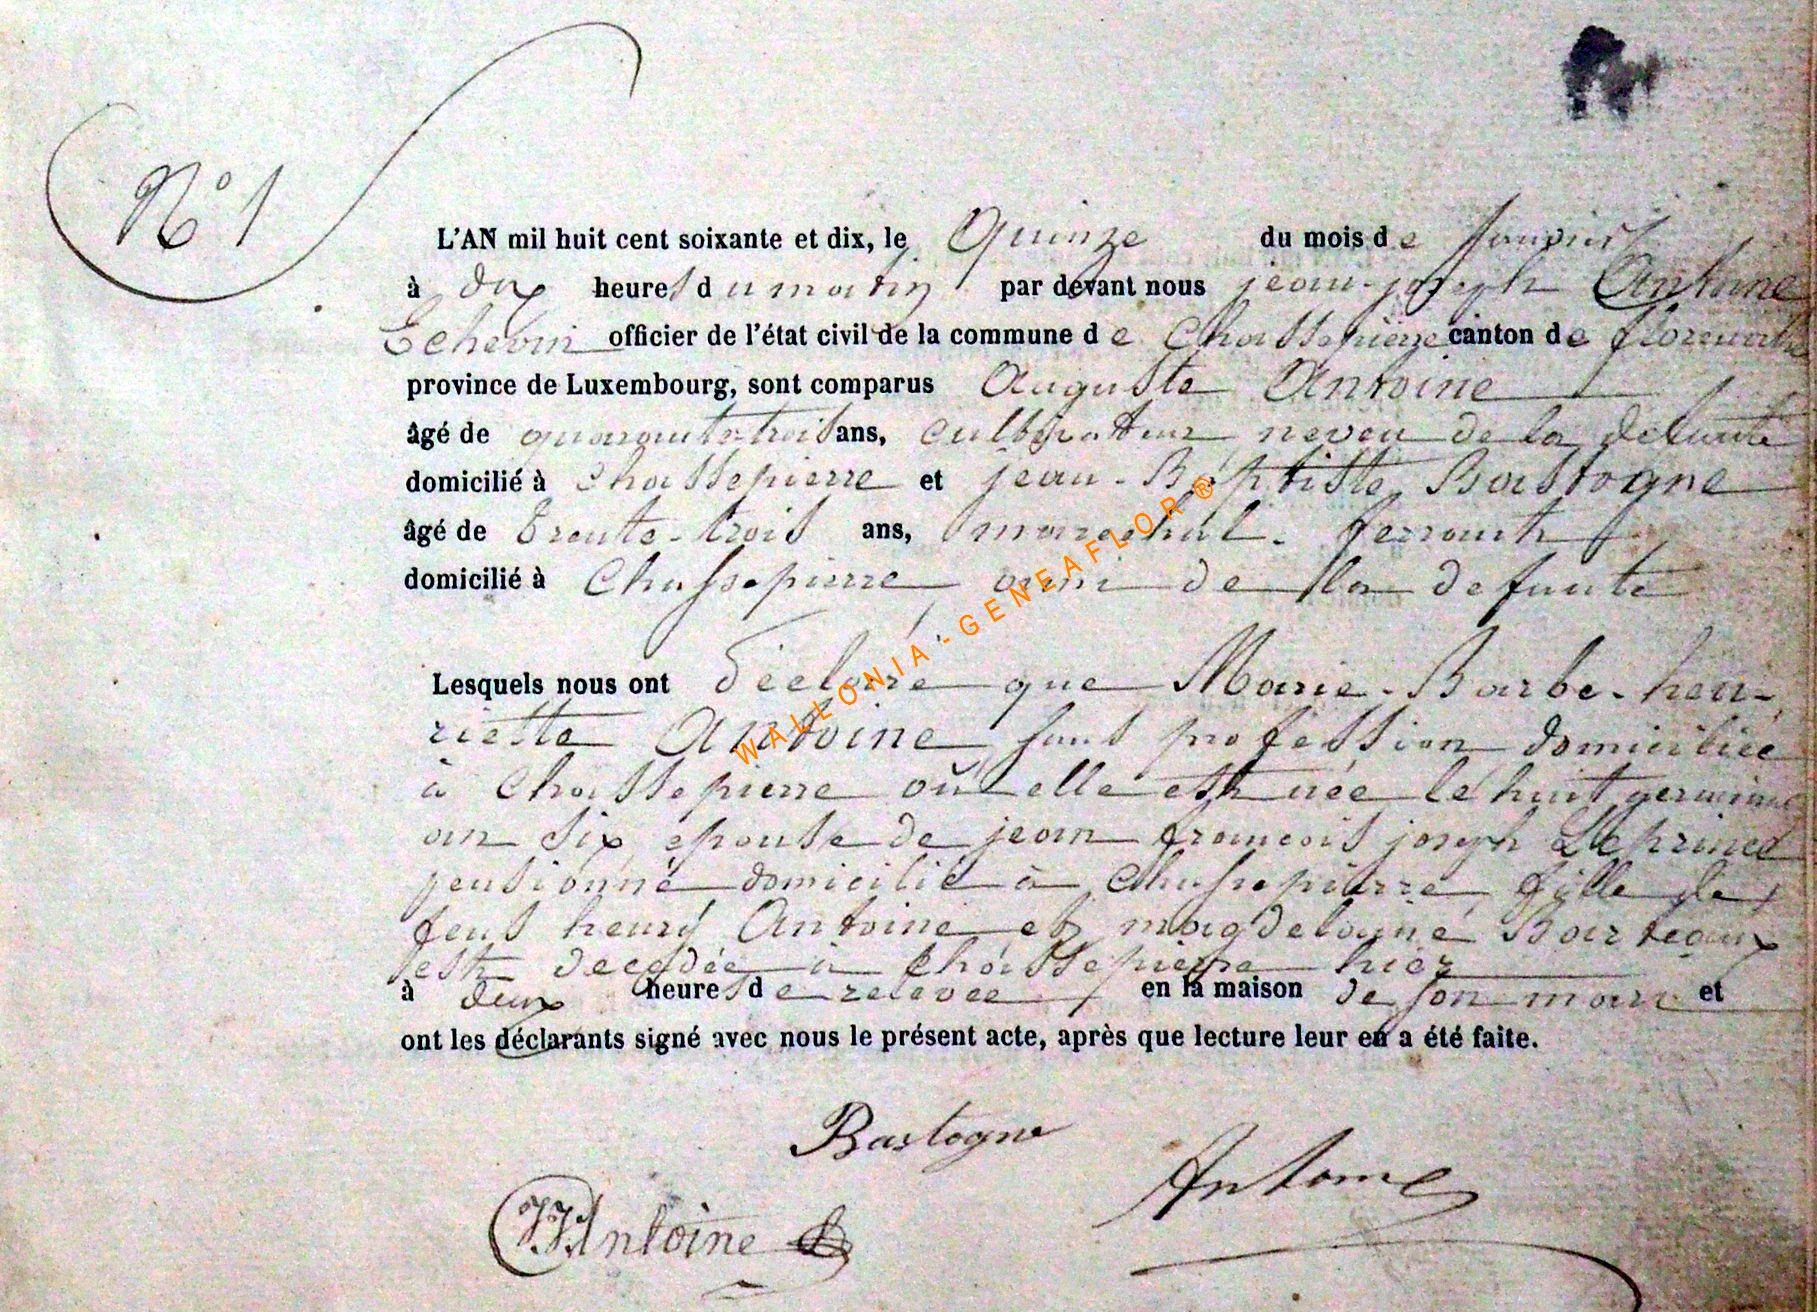 N° 1
L'AN mil huit cent soixante et dix, le Quinze du mois de Janvier
à dix heures du matin par devant nous jean-joseph Antoine
Echevin officier de l'état civil de la commune de Chassepierre canton de florenville
province de Luxembourg, sont comparus Auguste Antoine
âgé de quarante-trois ans, cultivateur neveu de la defunte
domicilié à Chassepierre et jean-Baptiste Bastogne
âgé de trente-trois ans, marechal-ferrant
domicilié à Chassepierre ami de la defunte
Lesquels nous ont déclaré que Marie-Barbe-hen-
riette Antoine sans profession domiciliée
à Chassepierre où elle est née le huit germinal
an six epouse de jean françois joseph Leprince
pensionné domicilié à Chassepierre, fille de
feus henry Antoine et magdelaine Barteaux
est decedée à Chassepierre hier
à deux heures de relevée en la maison de son mari et
ont les déclarants signé avec nous le présent acte, après que lecture leur en a été faite.
Bastogne
Antoine
JJAntoine
WALLONIA-GENEAFLOR ®